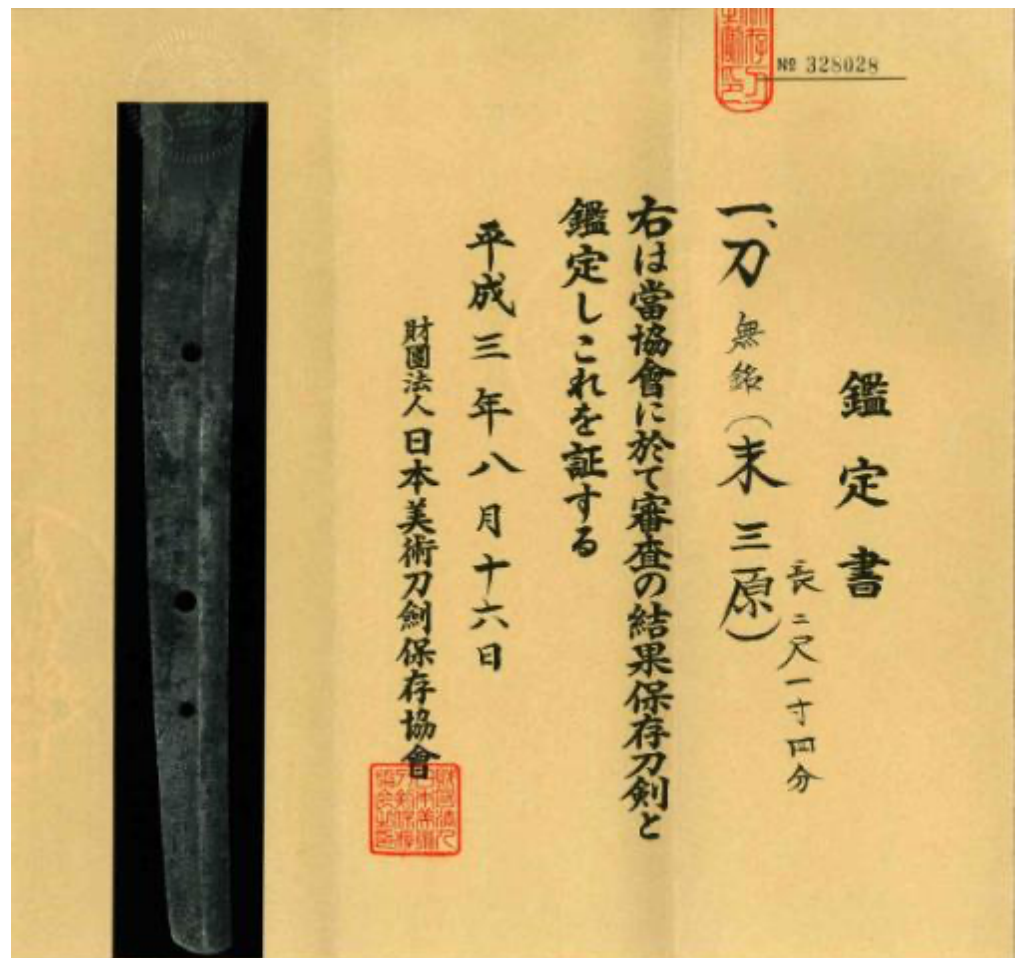 № 328028
鑑定書
長二尺一寸四分
一、刀 無銘(末三原)
右は當協會に於て審査の結果保存刀剣と
鑑定しこれを証する
平成三年八月十六日
財團法人日本美術刀劍保存協會